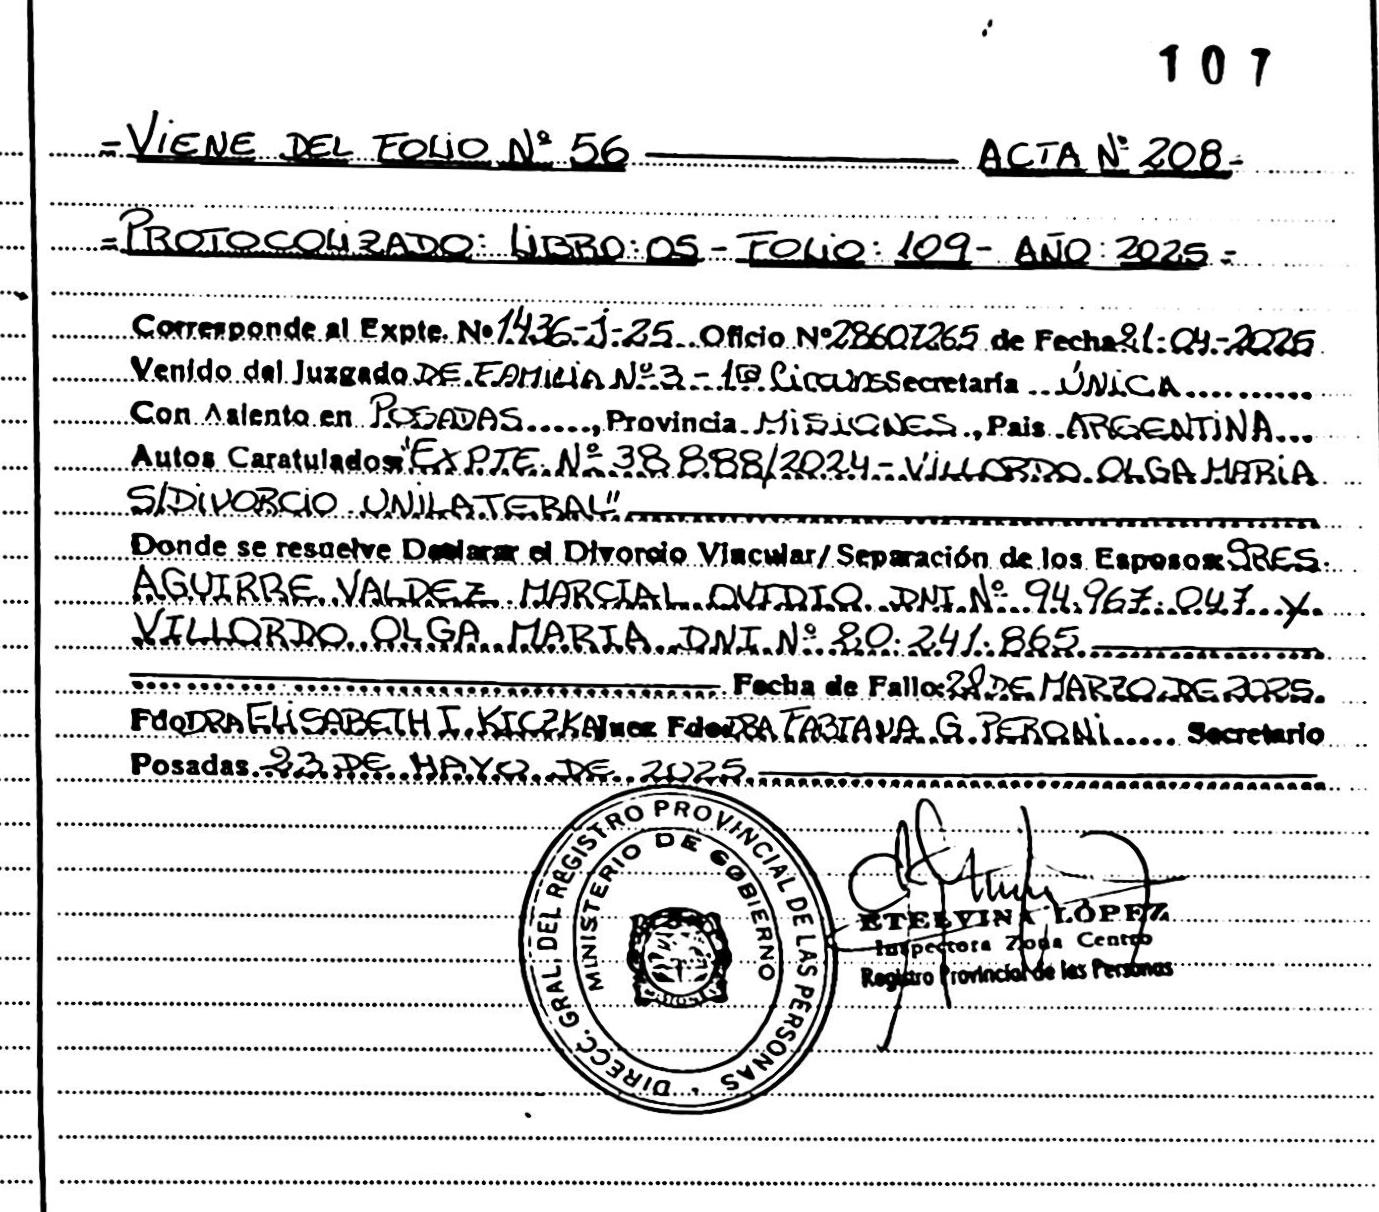 107
= VIENE DEL FOLIO Nº 56 ACTA Nº 208 -
= PROTOCOLIZADO: LIBRO: 05 - FOLIO: 109 - AÑO: 2025 =
Corresponde al Expte. Nº 1436-J-25 Oficio Nº 28607265 de Fecha 21-04-2025
Venido del Juzgado DE FAMILIA Nº 3 - 1ª Circuns Secretaría ÚNICA
Con Asiento en POSADAS, Provincia MISIONES, Pais ARGENTINA
Autos Caratulados "EXPTE Nº 38888/2024 - VILLORDO OLGA MARIA
S/DIVORCIO UNILATERAL"
Donde se resuelve Declarar el Divorcio Vincular/Separación de los Esposos: SRES.
AGUIRRE VALDEZ MARCIAL OVIDIO DNI Nº 94.967.047 y
VILLORDO OLGA MARIA DNI Nº 20.241.865
Fecha de Fallo: 28 DE MARZO DE 2025.
Fdo DRA ELISABETH I. KICZKA Juez Fdo DRA FABIANA G. PERONI Secretario
Posadas 23 DE MAYO DE 2025
DIRECC. GRAL. DEL REGISTRO PROVINCIAL DE LAS PERSONAS
MINISTERIO DE GOBIERNO
ETELVINA LÓPEZ
Inspectora Zona Centro
Registro Provincial de las Personas